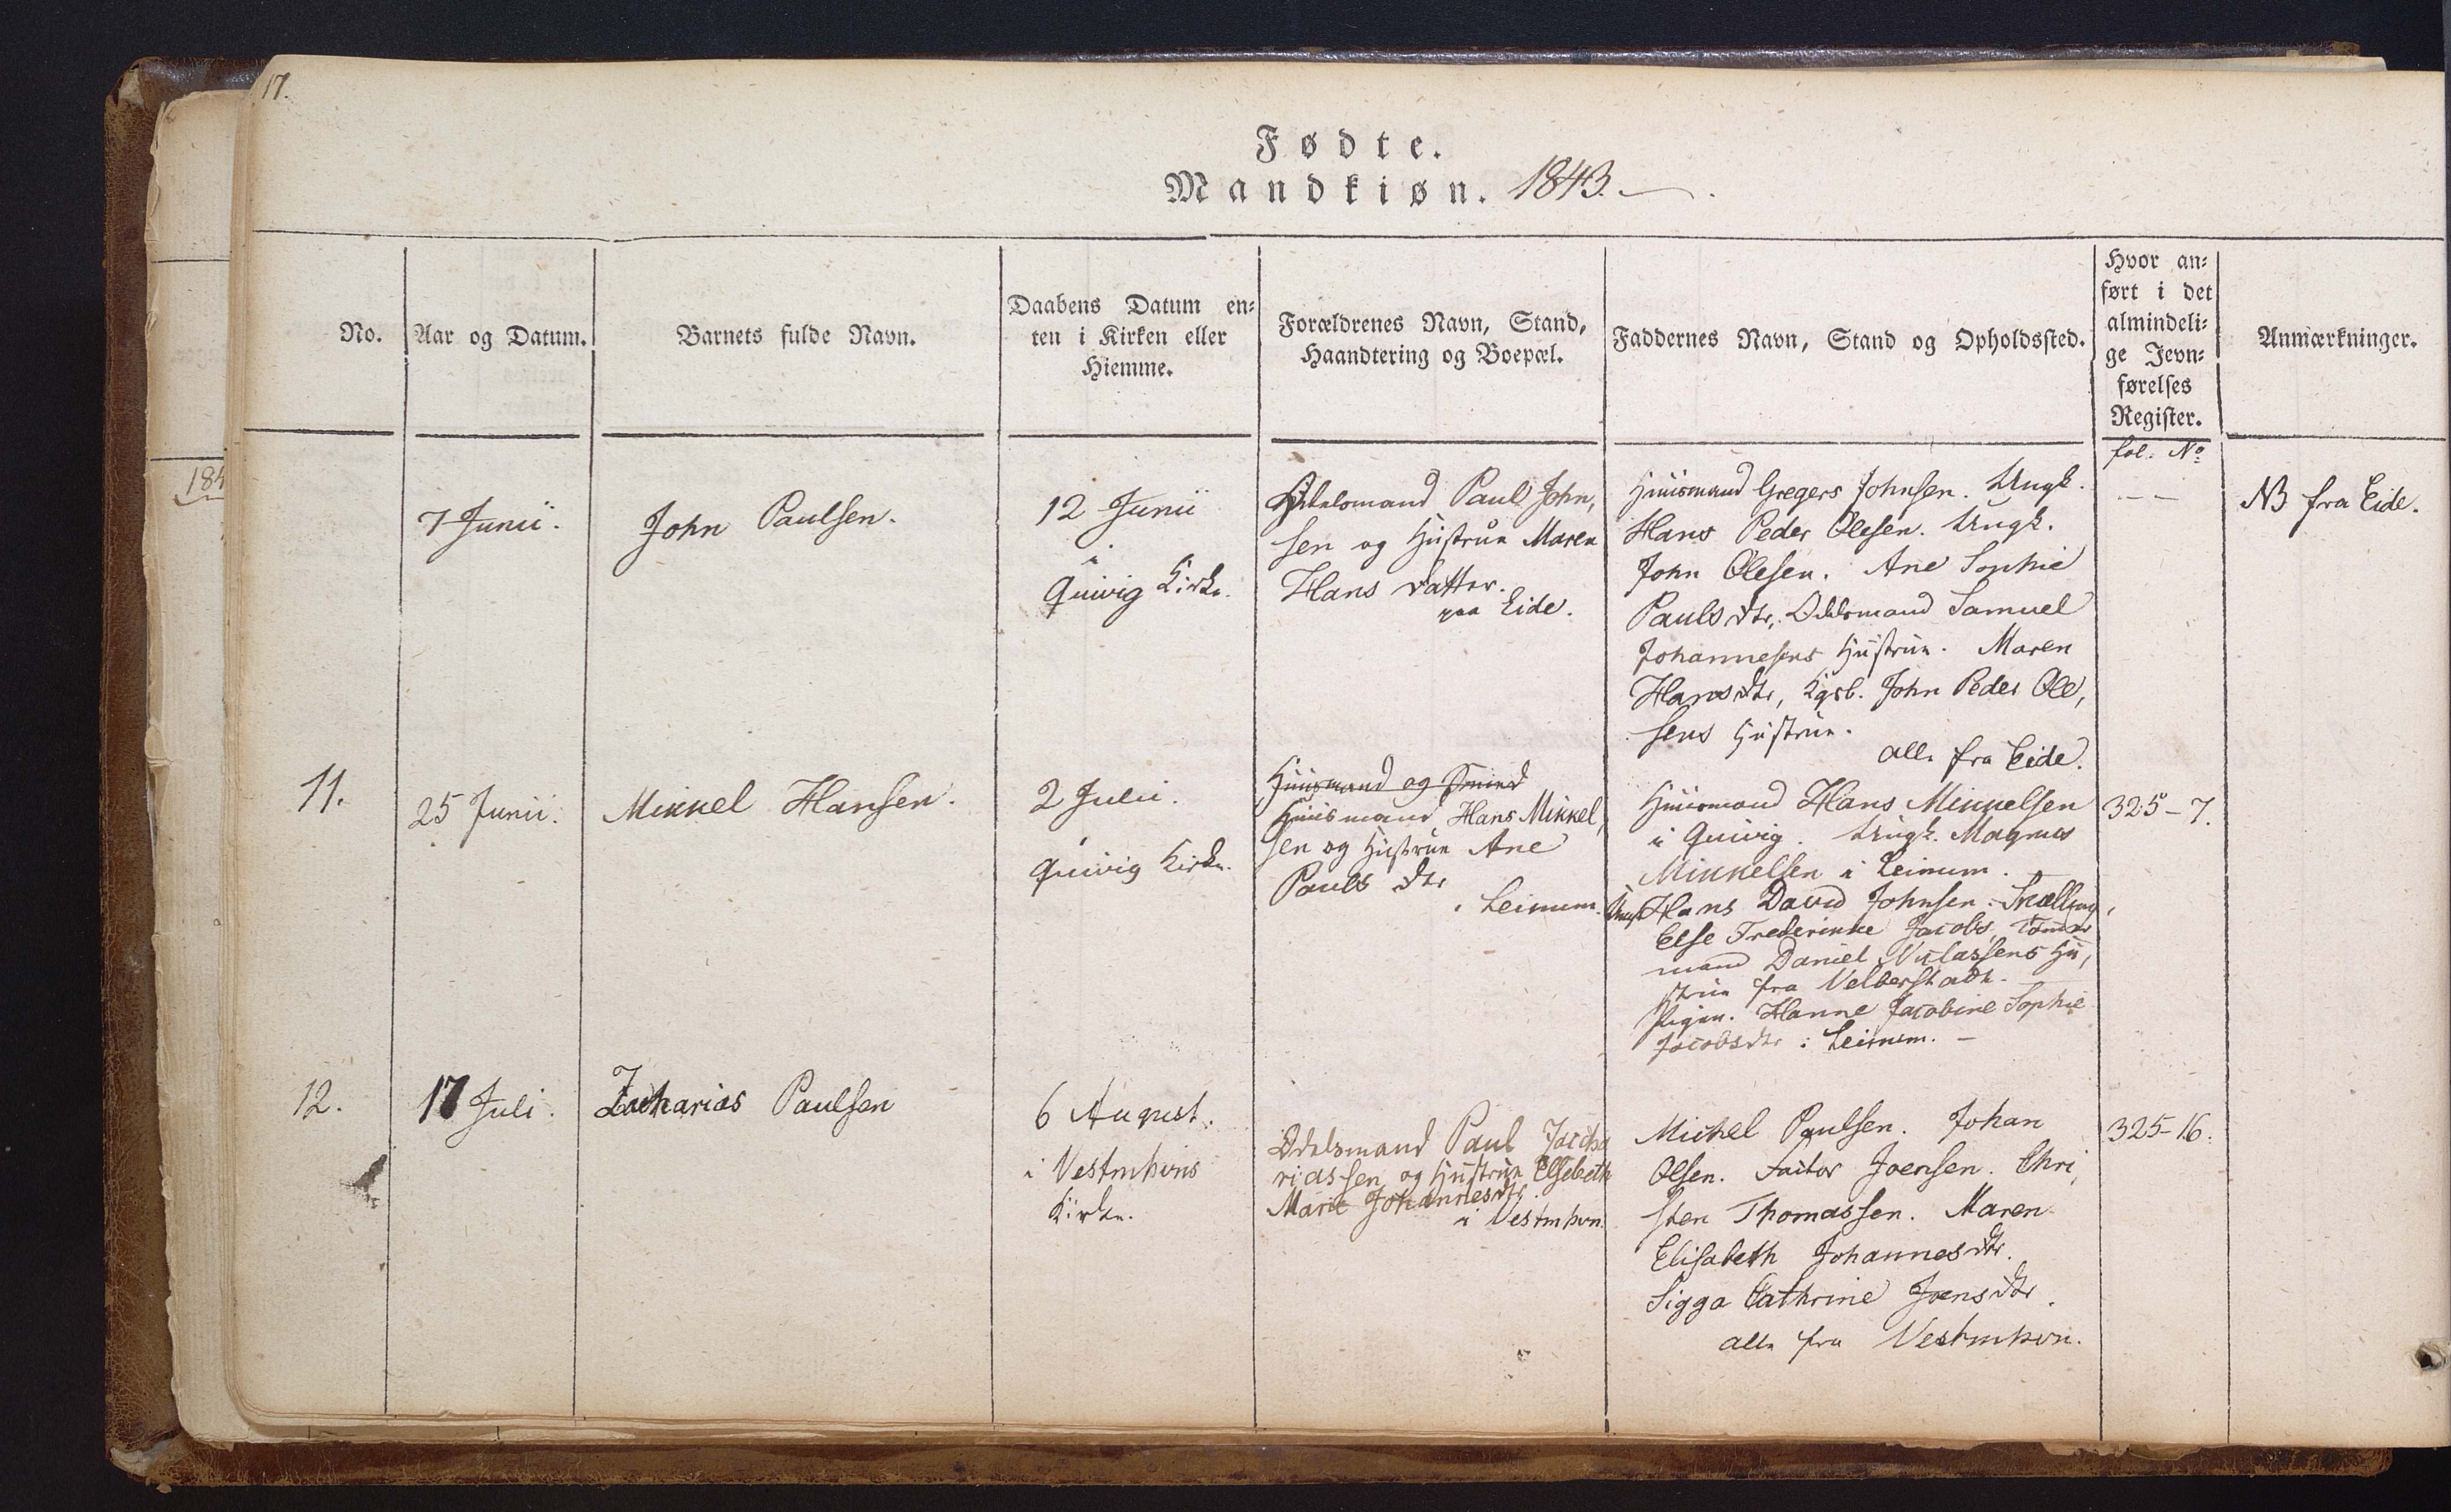 17.
Fødte.
Mandkiøn. 1843.
No.
Aar og Datum.
Barnets fulde Navn.
Daabens Datum en-
ten i Kirken eller
Hiemme.
Forældrenes Navn, Stand,
Haandtering og Boepæl.
Faddernes Navn, Stand og Opholdssted.
Hvor an-
ført i det
almindeli-
ge Jevn-
førelses
Register.
Anmærkninger.
fol. No
184
7 Junii.
John Paulsen.
12 Junii
i
Qvivig Kirke.
Odelsmand Paul John,
sen og Hustrue Maren
Hans datter.
paa Eide.
Huusmand Gregers Johnsen. Ungk.
Hans Peder Olesen. Ungk.
John Olesen. Ane Sophie
Pauls dtr, Odelsmand Samuel
Johannesens Hustrue. Maren
Hansdtr, Kgsb. John Peder Ole,
sens Hustrue.
alle fra Eide.
— —
NB fra Eide.
11.
25 Junii.
Mikkel Hansen.
2 Julii.
i
Qvivig Kirke.
Huusmand og Smed
Huusmand Hans Mikkel,
sen og Hustrue Ane
Pauls dtr
i Leinum.
Huusmand Hans Mikkelsen
i Qvivig. Ungk. Magnus
Mikkelsen i Leinum.
Ungk Hans David Johnsen. Snælling,
Else Frederikke Jacobs, Tømmer
mand Daniel Niclassens Hu,
strue fra Velberstadt.
Pigen. Hanne Jacobine Sophie
Jacobsdtr i Leinum. —
325-7.
12.
17 Juli.
Zacharias Paulsen
6 August.
i Vestmhvns
Kirke.
Odelsmand Paul Zacha
riassen og Hustrue Elsebeth
Marie Johannesdtr.
i Vestmhvn.
Michel Paulsen. Johan
Olsen. Factor Joensen. Chri,
sten Thomassen. Maren
Elisabeth Johannesdtr.
Sigga Cathrine Joensdtr.
alle fra Vestmhvn.
325-16.